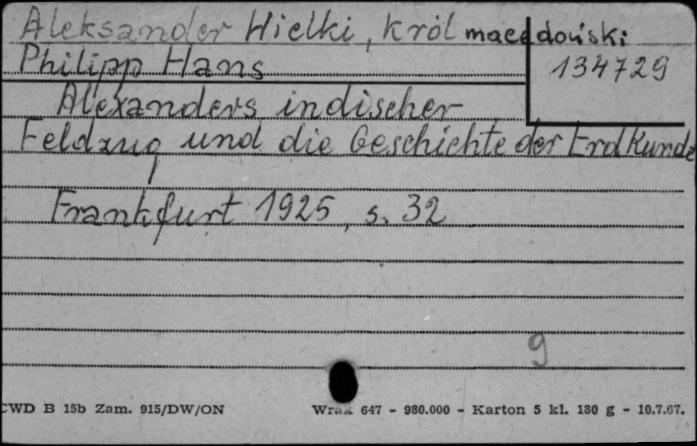 Aleksander Wielki, król macedoński
Philipp Hans
134729
Alexanders indischer
Feldzug und die Geschichte der Erdkunde
Frankfurt 1925, s. 32
9
CWD B 15b Zam. 915/DW/ON Wrak 647 - 980.000 - Karton 5 kl. 180 g - 10.7.67.